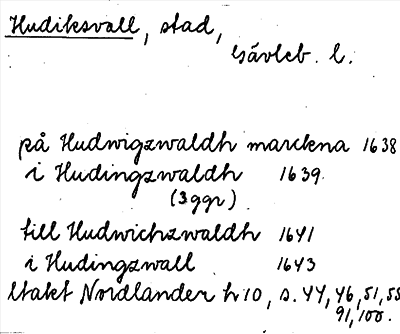 Hudiksvall, stad,
Gävleb. l.
på Hudwigzwaldh marckna 1638
i Hudingzwaldh 1639
(3 ggr)
till Hudwichzwaldh 1641
i Hudingzwall 1643
Utakt Nordlander h 10, s. 44, 46, 51, 55
91, 100.